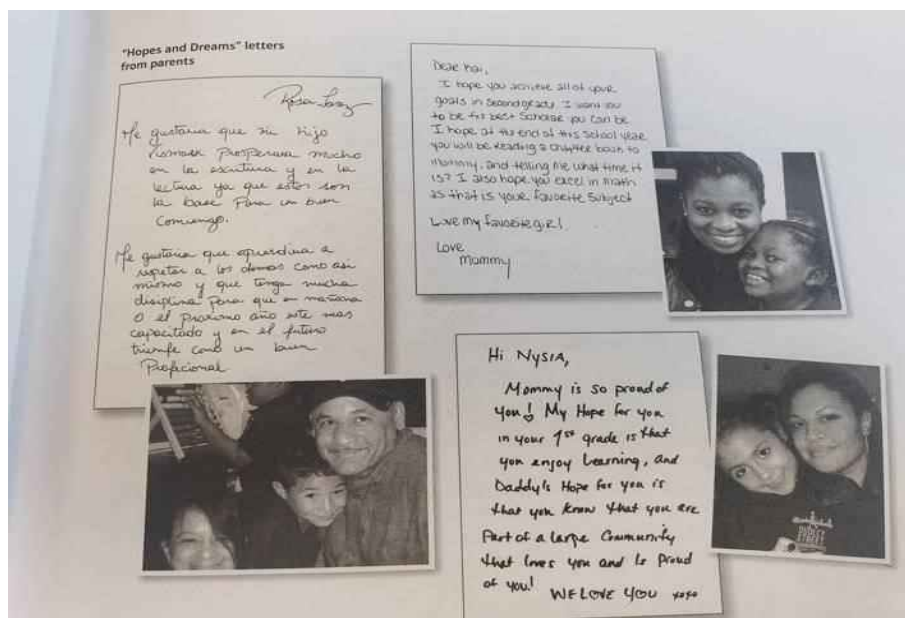 "Hopes and Dreams" letters
from parents
Rosa
Me gustaria que mi hijo
prosperara mucho
en la escritura y en la
lectura ya que estos son
la base para un buen
Comienzo.
Me gustaria que aprendiera a
respetar a los demas como asi
mismo y que tenga mucha
disiplina para que en mañana
o el proximo año este mas
capacitado y en el futuro
triunfe como un buen
Proficional
Dear Kai,
I hope you achieve all of your
goals in second grade. I want you
to be the best Scholar you can be
I hope at the end of this School year
you will be reading a chapter book to
mommy, and telling me what time it
is? I also hope you excel in math
as that is your favorite Subject
Love my favorite girl!
Love
Mommy
Hi Nysia,
Mommy is so proud of
you! My Hope for you
in your 1st grade is that
you enjoy Learning, and
Daddy's Hope for you is
that you know that you are
Part of a large Community
that loves you and is proud
of you! WE LOVE YOU xoxo